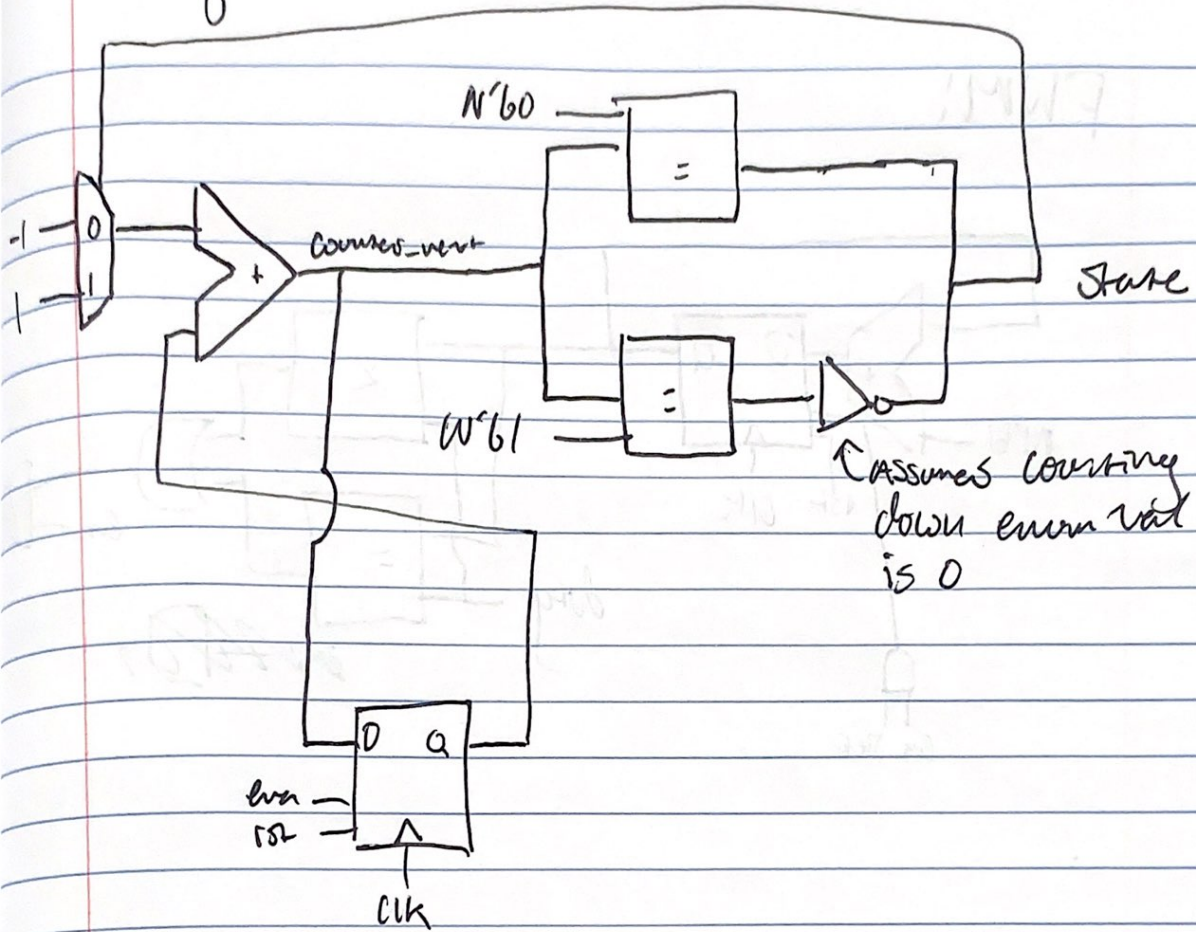 N'b0
=
-1
0
1
1
+
counter_next
State
=
N'b1
↑ Assumes counting
down enum val
is 0
D Q
ena
rst
clk